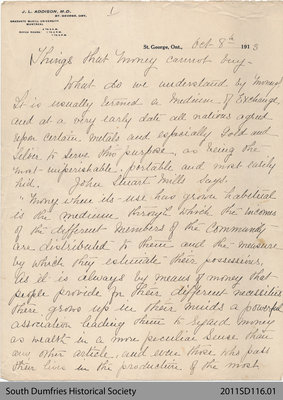 J. L. ADDISON, M.D.
ST. GEORGE, ONT.
GRADUATE MCGILL UNIVERSITY
MONTREAL
OFFICE HOURS
1
St. George, Ont., Oct 8th 1913
Things that money cannot buy-
What do we understand by money
It is usually termed a medium of exchange
and at a very early date all nations agreed
upon certain metals and especially Gold and
Silver to serve this purpose, as being the
most imperishable, portable and most easily
hid. John Stuart Mills says.
"Money when its use has grown habitual
is the medium through which the incomes
of the different members of the Community
are distributed to them and the measure
by which they estimate their possessions,
As it is always by means of money that
people provide for their different necessities
there grows up in their minds a powerful
association leading them to regard money
as wealth in a more peculiar sense than
any other article, and even those who pass
their lives in the production of the most
South Dumfries Historical Society
2011SD116.01